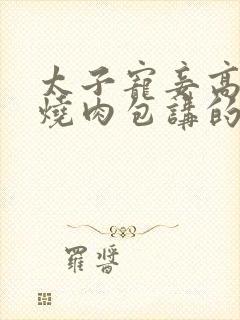 太子寵妾高
燒肉包講的
羅醬